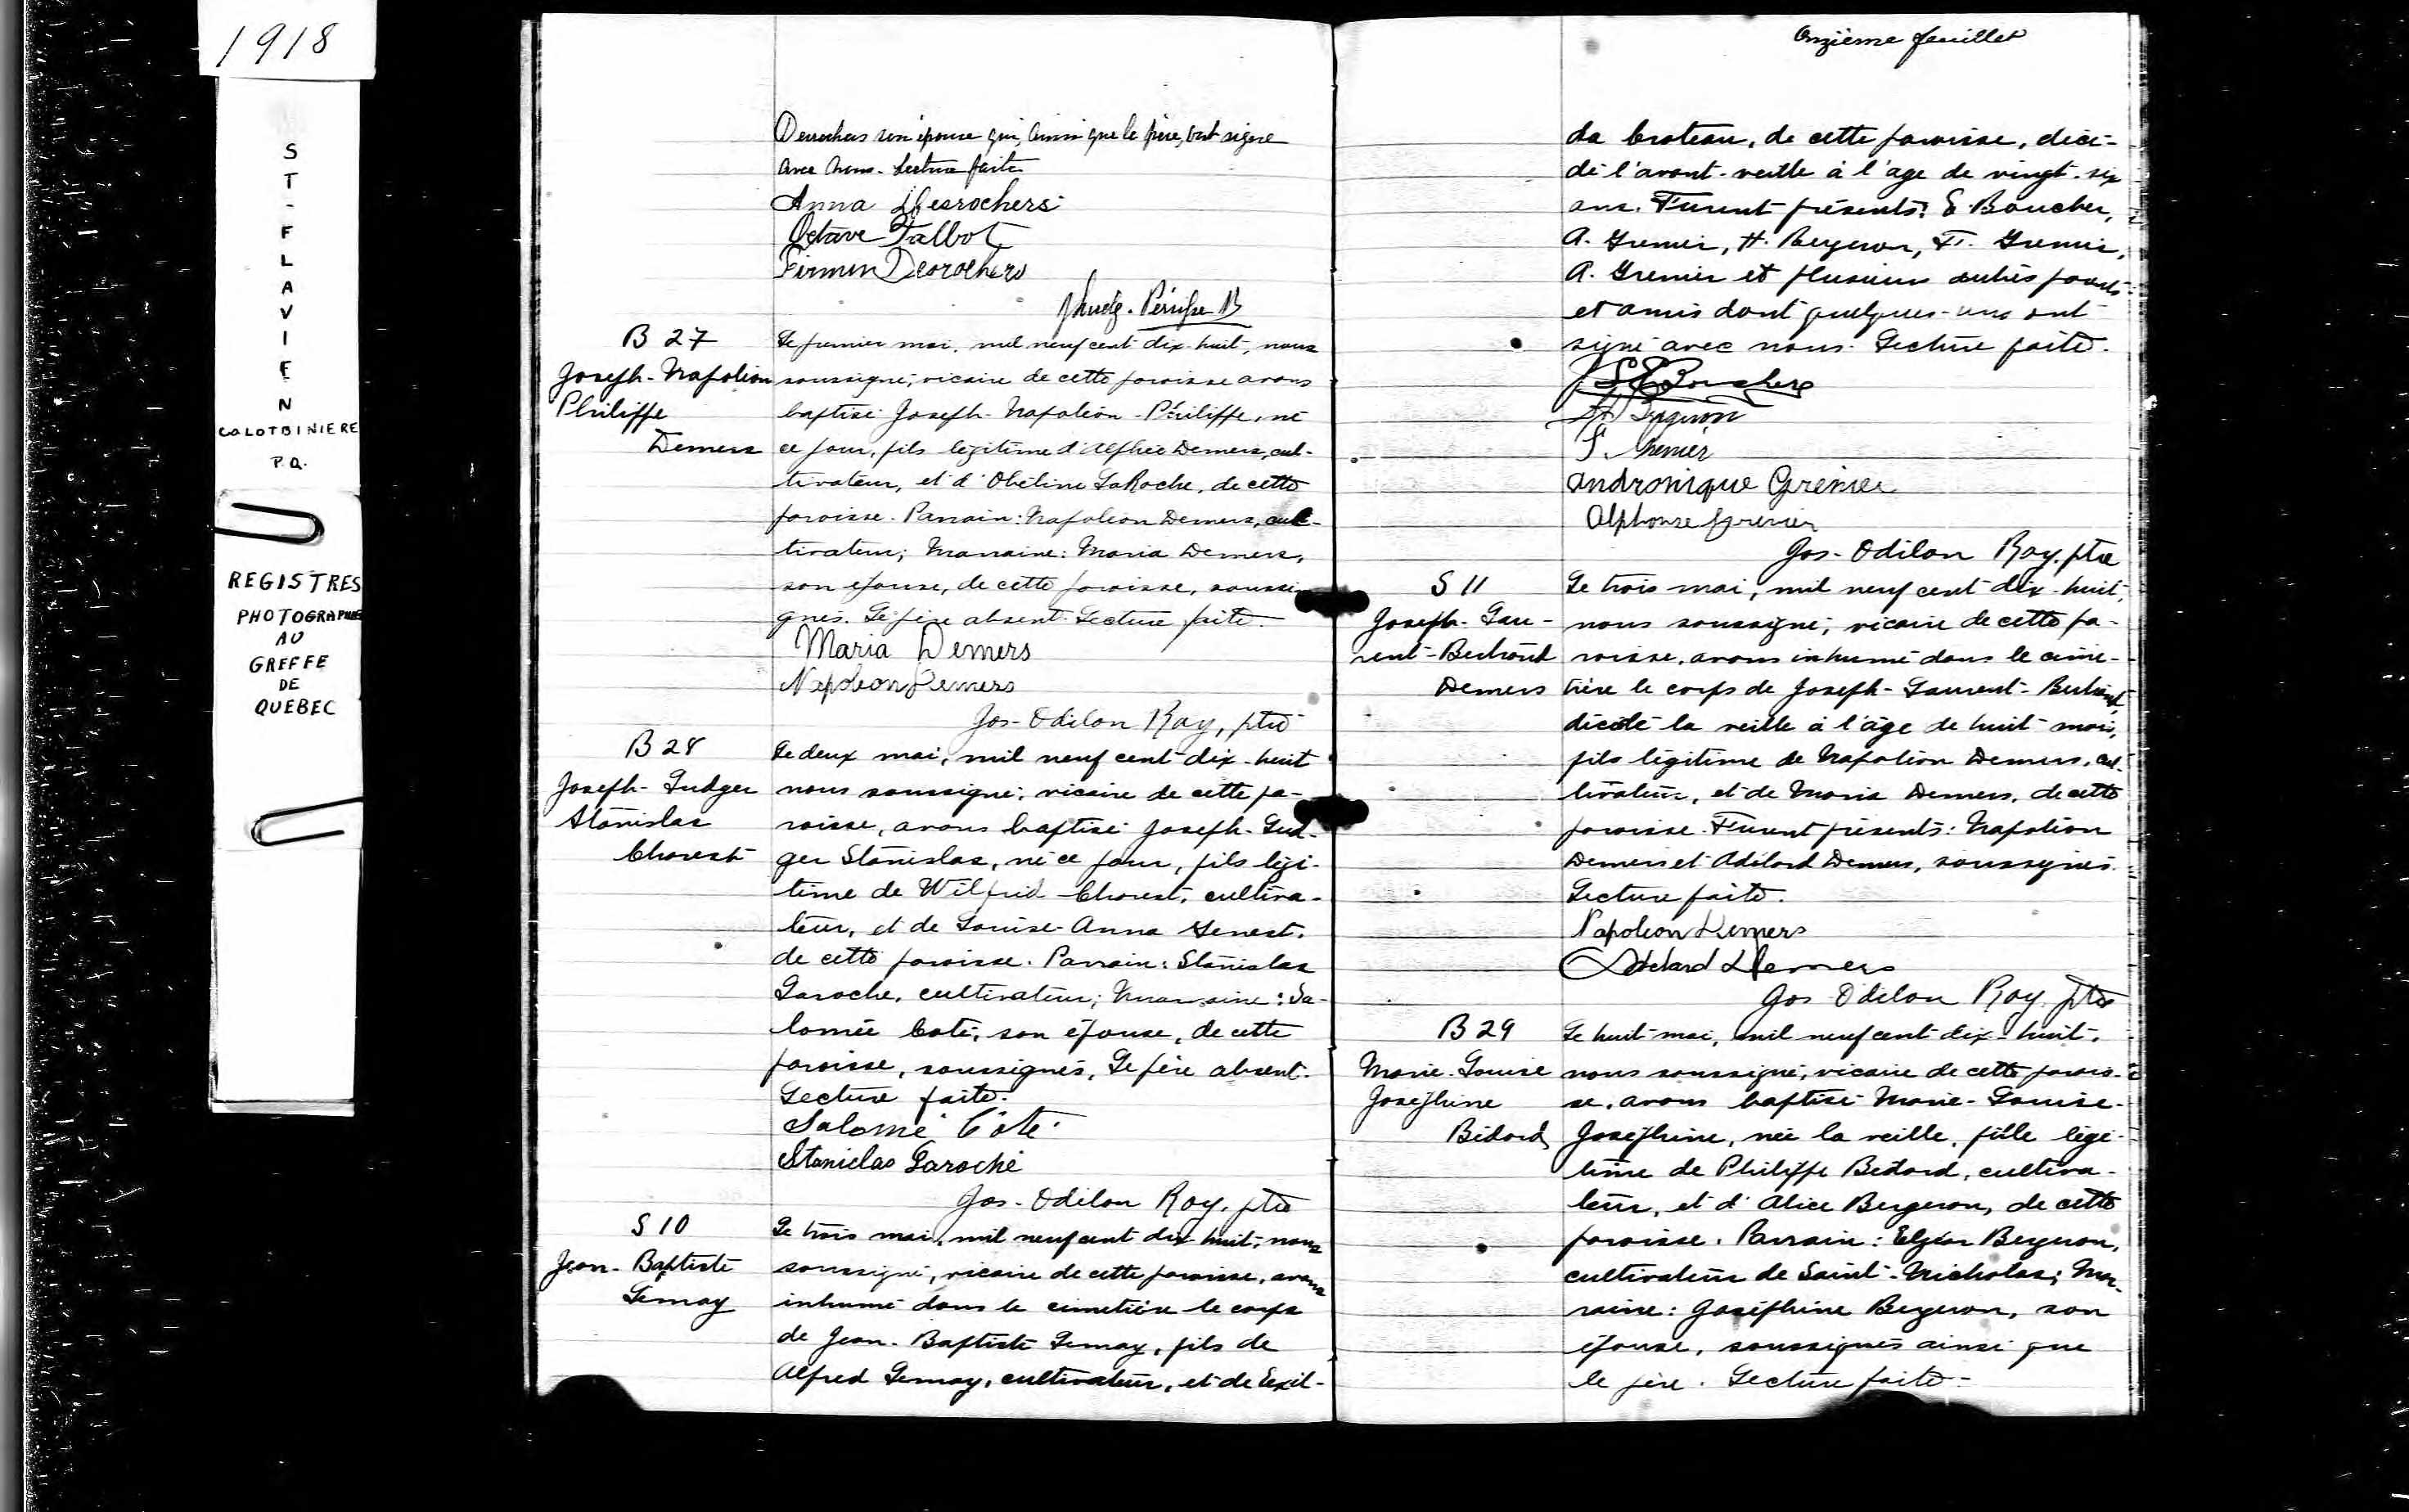 1918
ST-FLAVIEN
COLOTBINIERE
P.Q.
REGISTRES
PHOTOGRAPHIES
AU
GREFFE
DE
QUEBEC
Desrochers son épouse qui, ainsi que le père, ont signé
avec nous. Lecture faite
Anna Desrochers
Octave Talbot
Firmin Desrochers
B 27
Joseph-Napoléon
Philippe
Demers
Le premier mai, mil neuf cent dix-huit, nous
soussigné, vicaire de cette paroisse avons
baptisé Joseph-Napoléon-Philippe, né
ce jour, fils légitime d'Alphée Demers, cul-
tivateur, et d'Obéline LaRoche, de cette
paroisse. Parrain: Napoléon Demers, cul-
tivateur; Marraine: Maria Demers,
son épouse, de cette paroisse, soussi-
gnés. Le père absent. Lecture faite.
Maria Demers
Napoleon Demers
Jos-Odilon Roy, ptre
B 28
Joseph-Ludger
Stanislas
Chorest
Le deux mai, mil neuf cent dix-huit
nous soussigné, vicaire de cette pa-
roisse, avons baptisé Joseph-Lud-
ger Stanislas, né ce jour, fils légi-
time de Wilfrid Chorest, cultiva-
teur, et de Louise-Anna Genest,
de cette paroisse. Parrain: Stanislas
Laroche, cultivateur; Marraine: Sa-
lomée Coté, son épouse, de cette
paroisse, soussignés. Le père absent.
Lecture faite.
Salomé Côté
Stanislas Laroche
Jos-Odilon Roy, ptre
S 10
Jean-Baptiste
Lemay
Le trois mai, mil neuf cent dix-huit, nous
soussigné, vicaire de cette paroisse, avons
inhumé dans le cimetière le corps
de Jean-Baptiste Lemay, fils de
Alfred Lemay, cultivateur, et de Exil-
Onzième feuillet
da Croteau, de cette paroisse, décé-
dé l'avant-veille à l'âge de vingt-six
ans. Furent présents: E. Boucher,
A. Grenier, H. Bergeron, F. Grenier,
A. Grenier et plusieurs autres parents
et amis dont quelques-uns ont
signé avec nous. Lecture faite.
Boucher
H. Bergeron
F. Grenier
Andronique Grenier
Alphonse Grenier
Jos-Odilon Roy, ptre
S 11
Joseph-Lau-
rent-Bertrand
Demers
Le trois mai, mil neuf cent dix-huit,
nous soussigné, vicaire de cette pa-
roisse, avons inhumé dans le cime-
tière le corps de Joseph-Laurent-Bertrand,
décédé la veille à l'âge de huit mois,
fils légitime de Napoléon Demers, cul-
tivateur, et de Maria Demers, de cette
paroisse. Furent présents: Napoléon
Demers et Adélard Demers, soussignés.
Lecture faite.
Napoleon Demers
Adelard Demers
Jos Odilon Roy ptre
B 29
Marie-Louise
Joséphine
Bédard
Le huit mai, mil neuf cent dix-huit,
nous soussigné, vicaire de cette parois-
se, avons baptisé Marie-Louise-
Joséphine, née la veille, fille légi-
time de Philippe Bédard, cultiva-
teur, et d'Alice Bergeron, de cette
paroisse. Parrain: Elzéar Bergeron,
cultivateur de Saint-Nicholas; Mar-
raine: Joséphine Bergeron, son
épouse, soussignés ainsi que
le père. Lecture faite.